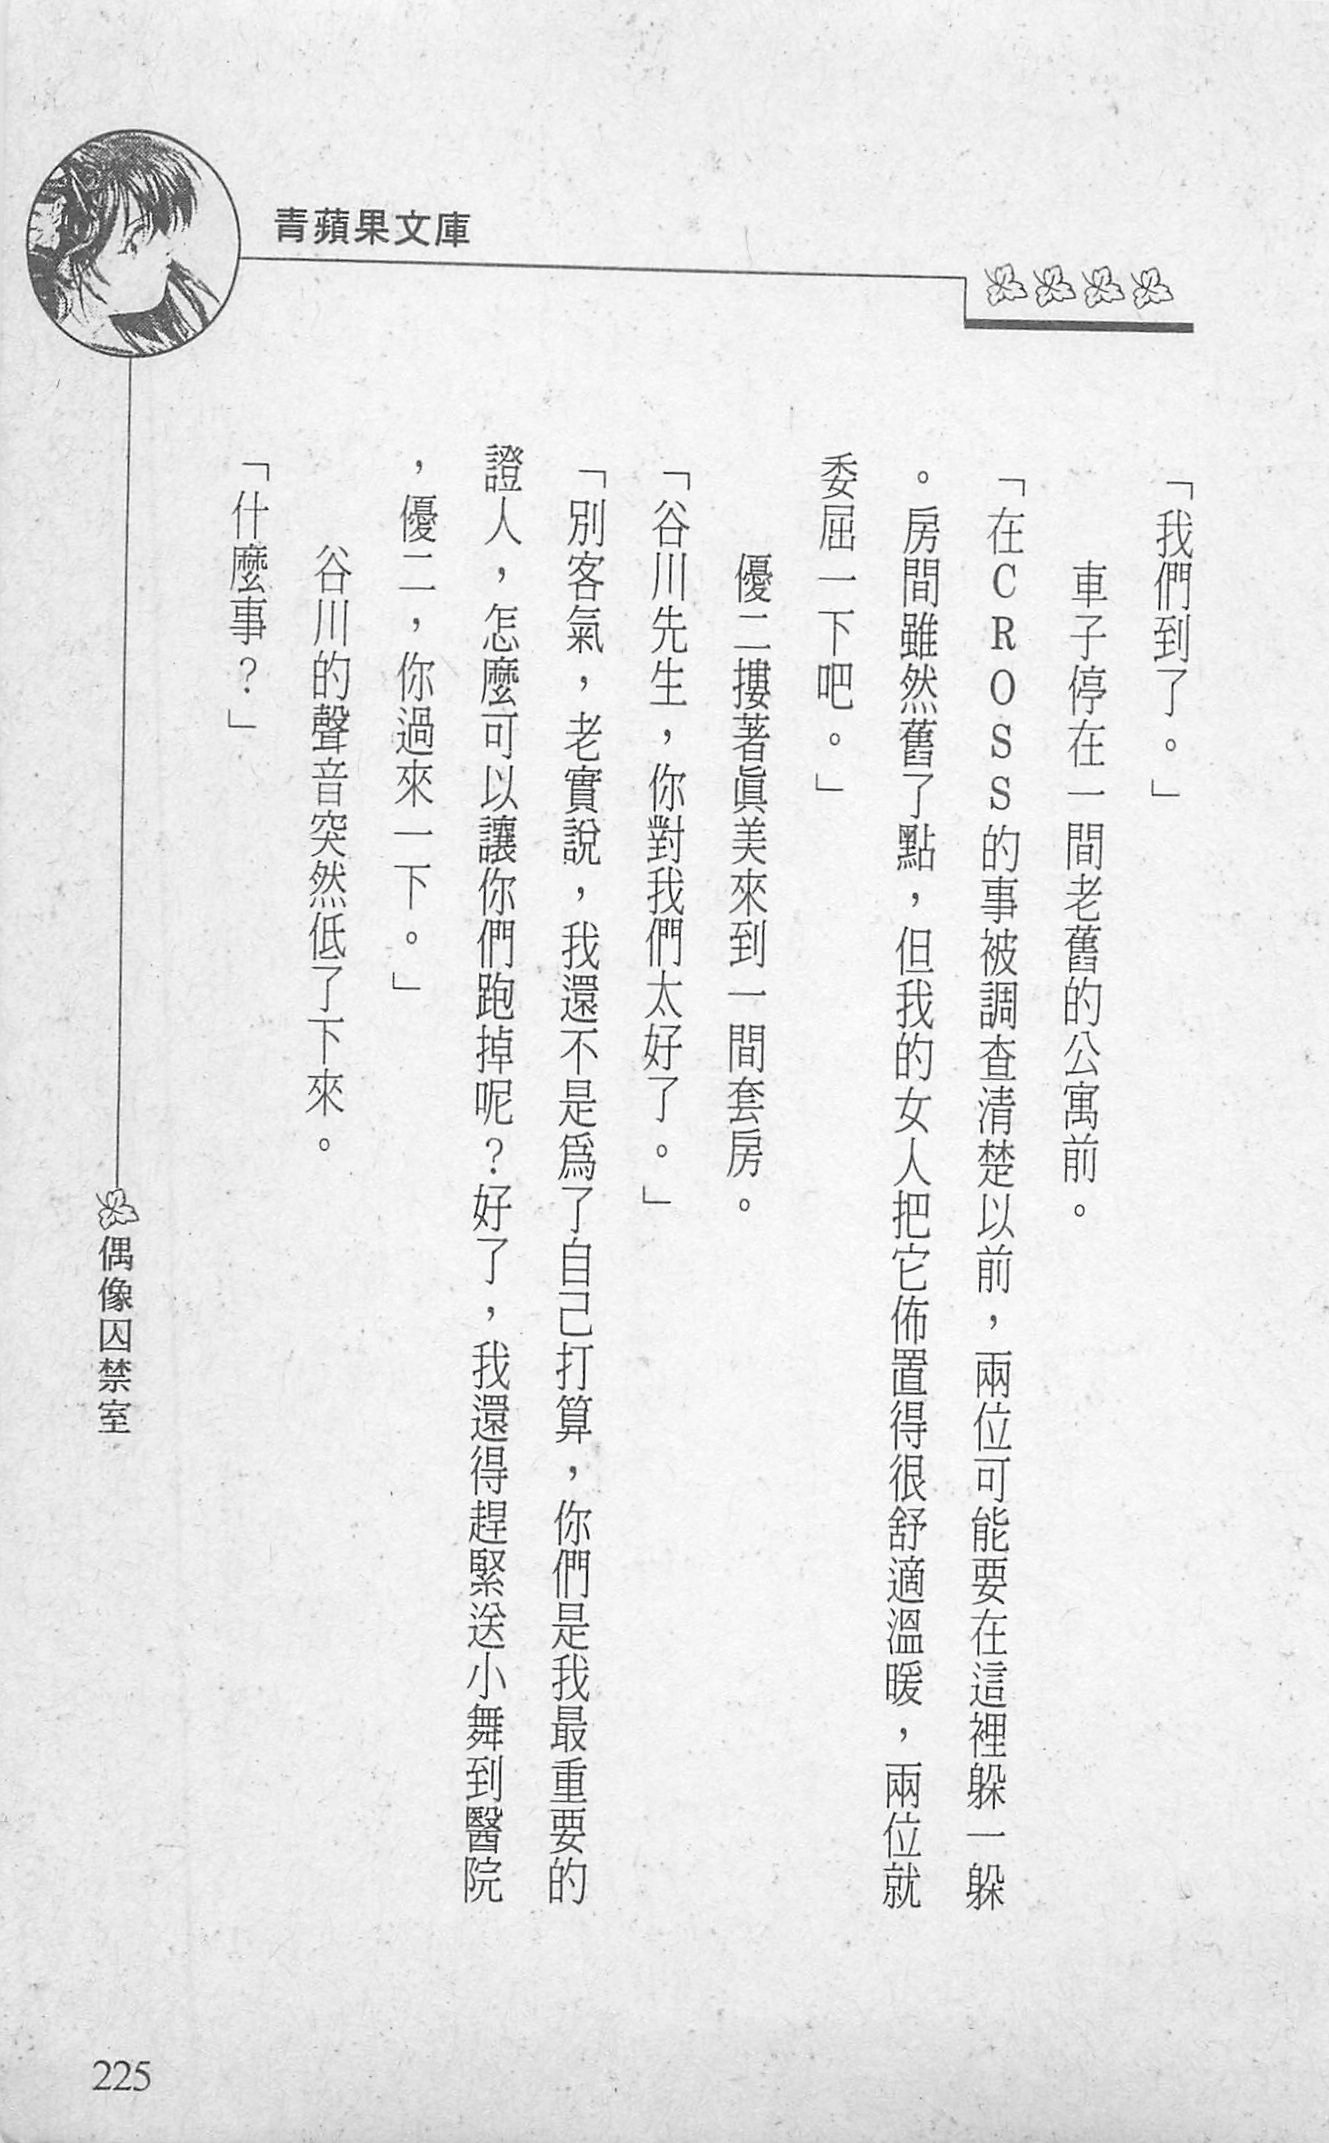 青蘋果文庫
「我們到了。」
車子停在一間老舊的公寓前。
「在CROSS的事被調查清楚以前，兩位可能要在這裡躲一躲
。房間雖然舊了點，但我的女人把它佈置得很舒適溫暖，兩位就
委屈一下吧。」
優二摟著眞美來到一間套房。
「谷川先生，你對我們太好了。」
「別客氣，老實說，我還不是爲了自己打算，你們是我最重要的
證人，怎麼可以讓你們跑掉呢？好了，我還得趕緊送小舞到醫院
，優二，你過來一下。」
谷川的聲音突然低了下來。
「什麼事？」
偶像囚禁室
225